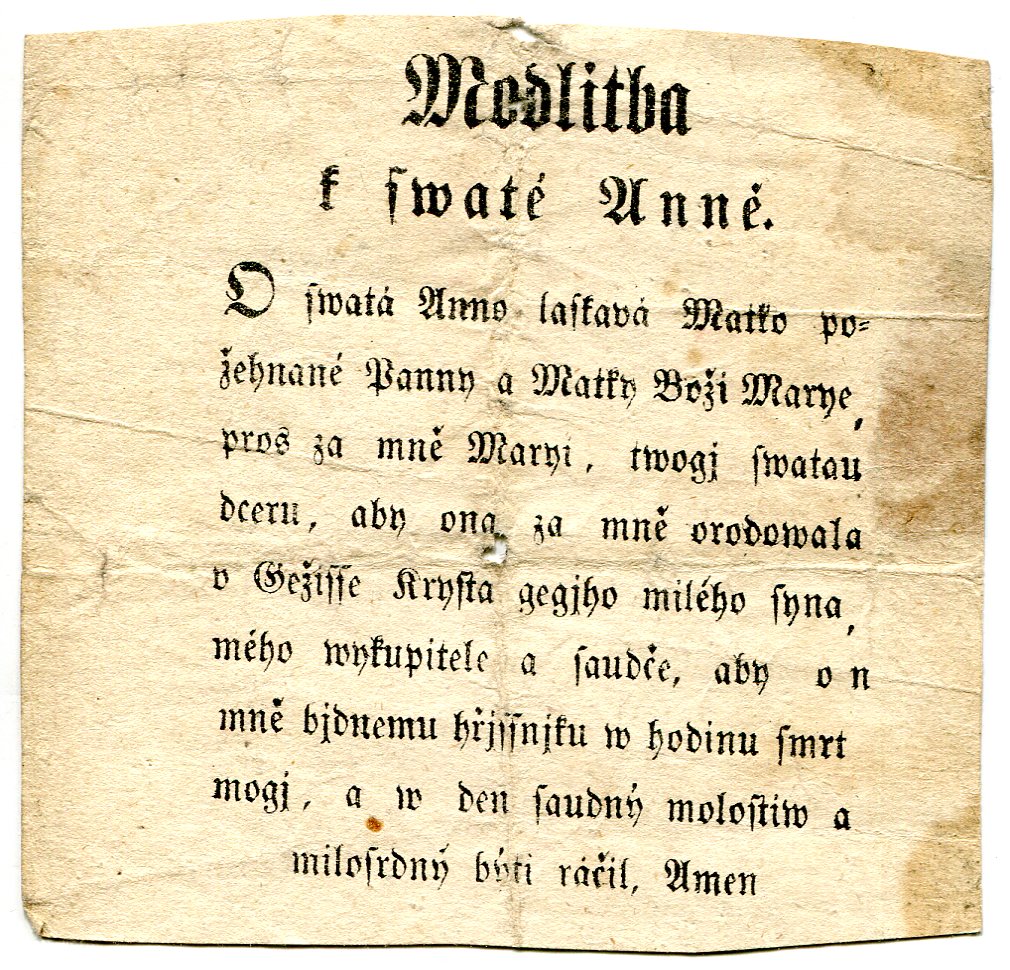 Modlitba
k swaté Anně.
O swatá Anno laskavá Matko po=
žehnané Panny a Matky Boži Marye,
pros za mně Maryi, twogj swatau
dceru, aby ona za mně orodowala
v Gežisse Krysta gegjho milého syna,
mého wykupitele a saudče, aby on
mně bjdnemu hřjssnjku w hodinu smrt
mogj, a w den saudný molostiw a
milosrdný býti ráčil, Amen